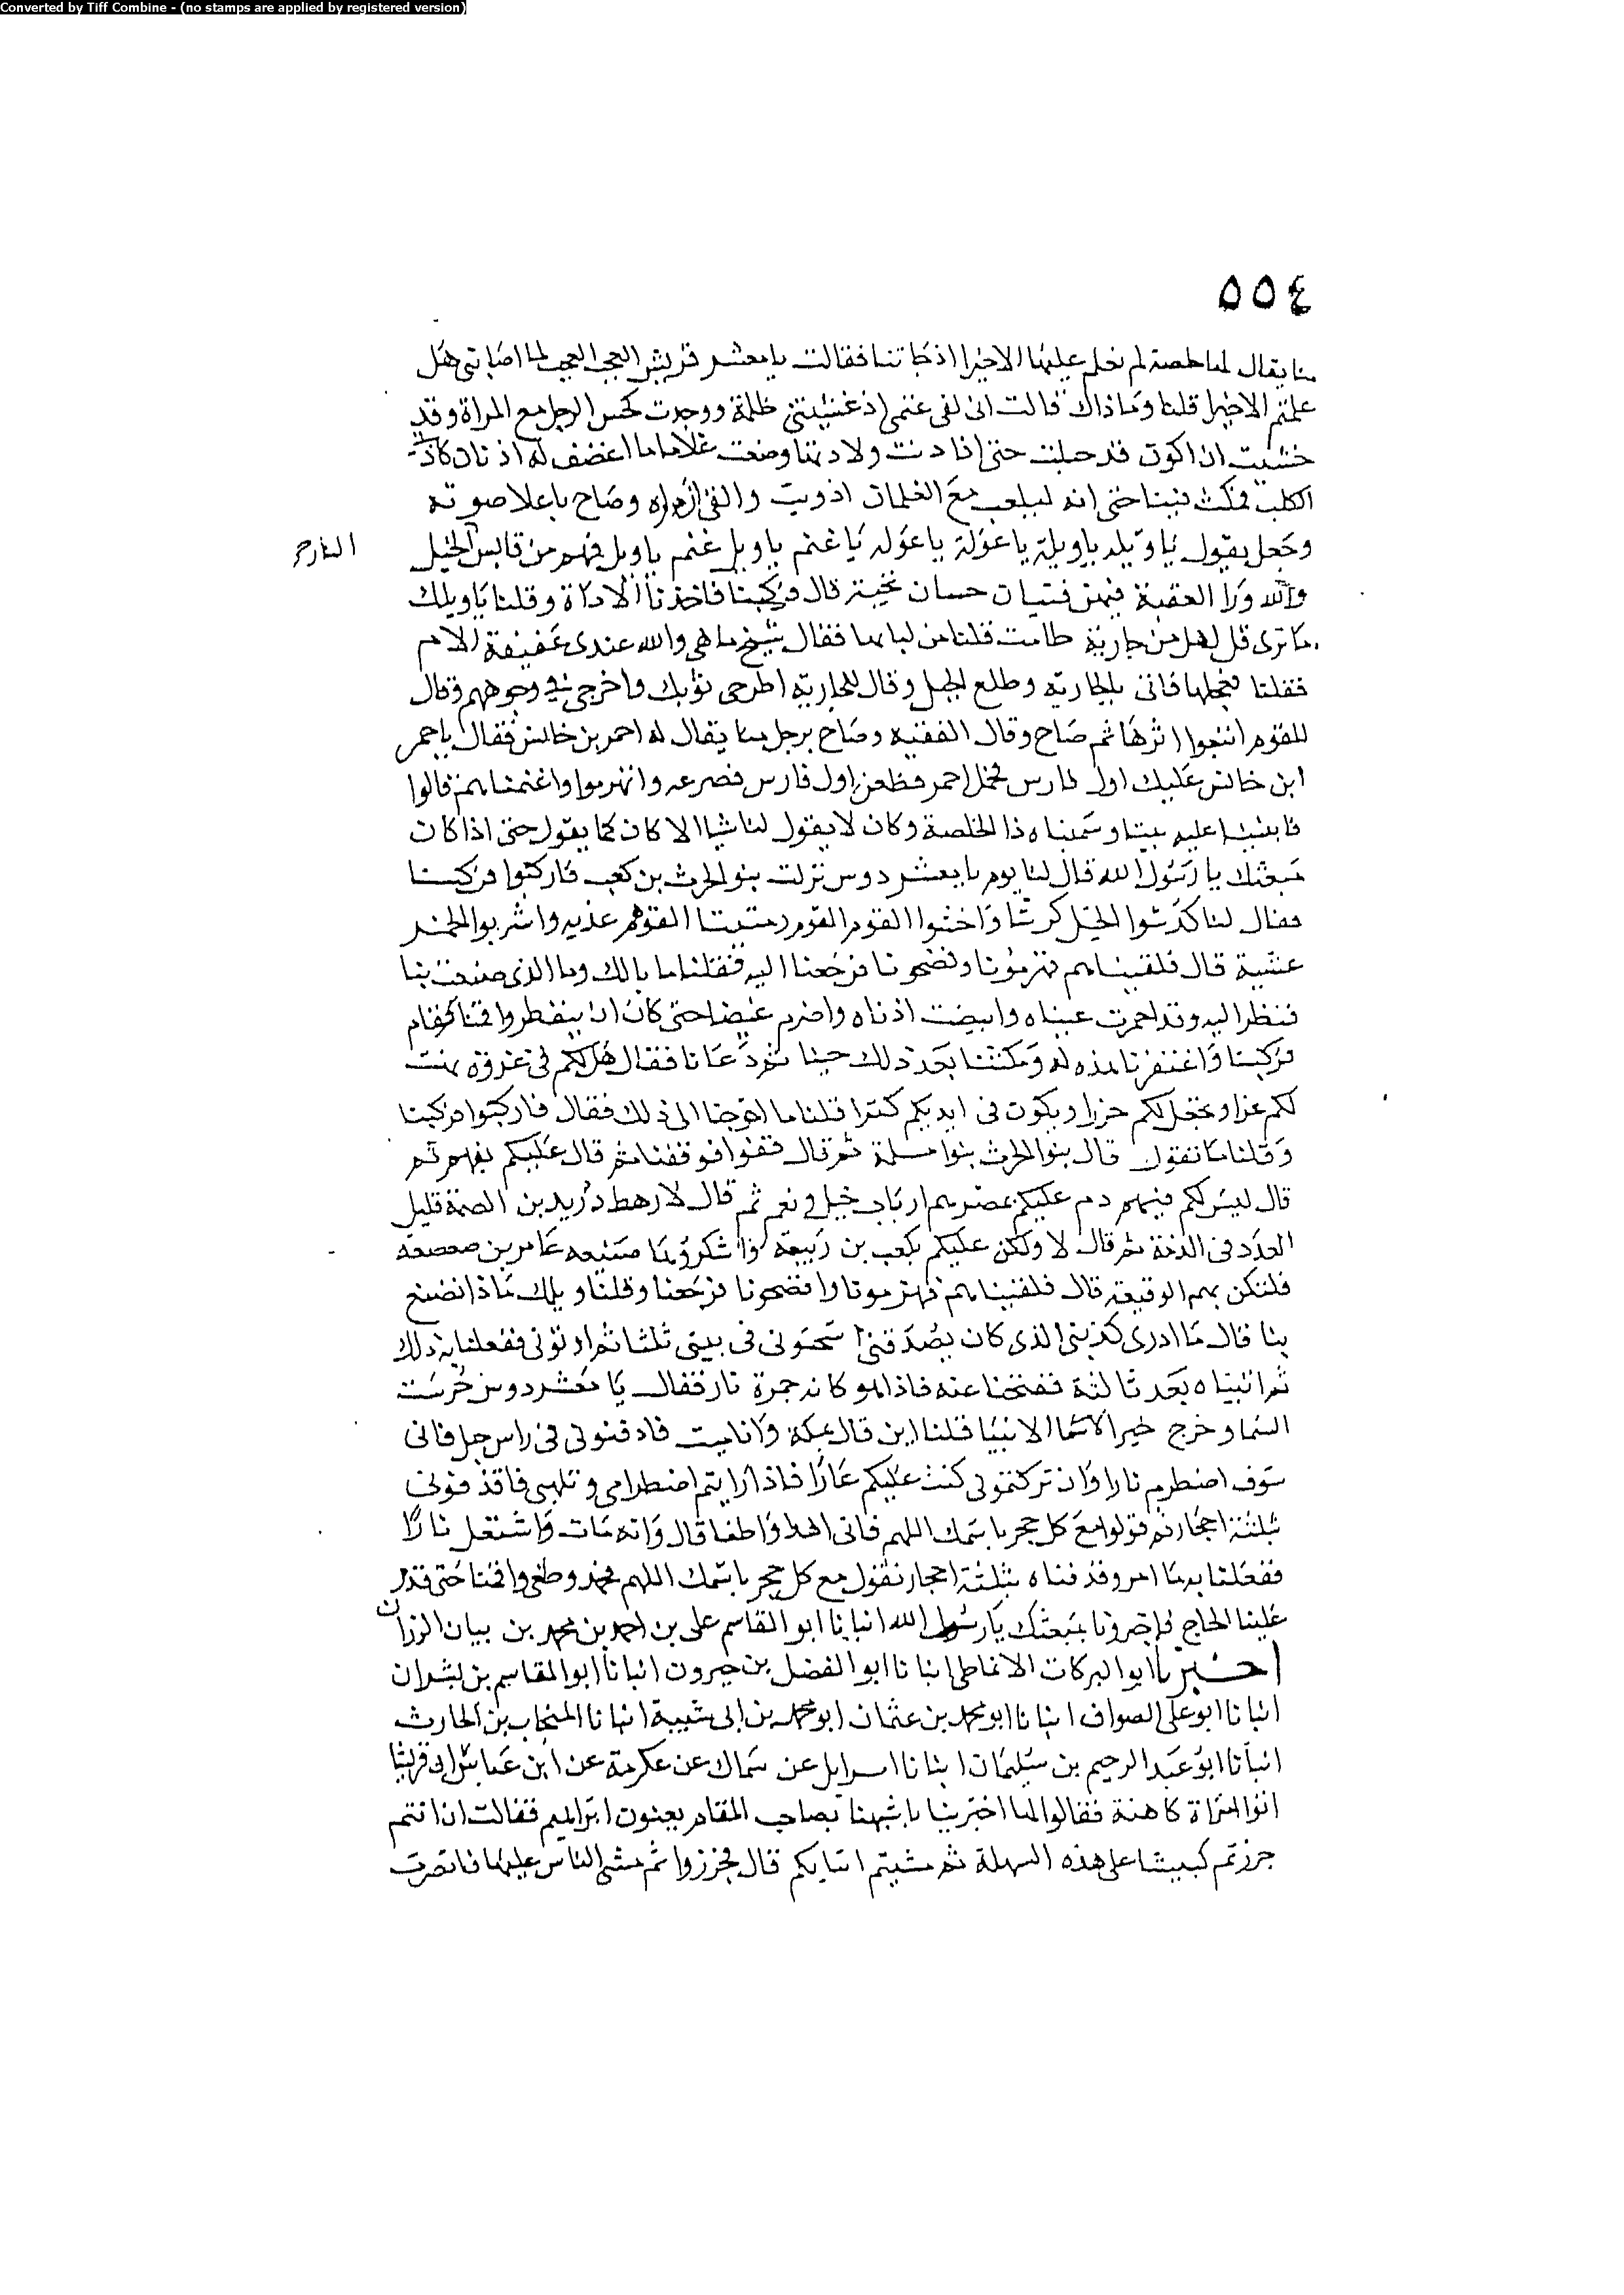 Converted by Tiff Combine - (no stamps are applied by registered version)
٥٥٤
منا يقال لها خلصة لم نعلم عليها الا خيرا اذ جاتنا فقالت يا معشر قريش العجب العجب لما اصابني هل
علمتم الا خيرا قلنا وما ذاك قالت انى لفى غنمى اذ غشيتنى ظلمة ووجدت كحس الرجل مع المراة وقد
خشيت ان اكون قد حبلت حتى اذا دنت ولادتها وضعت غلاما ما اغضف له اذنان كاذنى
الكلب فمكث فينا حتى انه ليلعب مع الغلمان اذ وثب والقى ازاره وصاح باعلا صوته
وجعل يقول يا ويله يا ويلة يا عولة يا عوله يا غنم يا ويل غنم يا ويل فهم من قابس الخيل
النار صح
والله ورا العقبة فيهن فتيان حسان نجبة قال فركبنا فاخذنا الاداة وقلنا يا ويلك
ما ترى قل هل من جارية طامث قلنا من لنا بها فقال شيخ منا هى والله عندى عفيفة الام
فقلنا فعجلها فاتى بالجارية وطلع الجبل وقال للجارية اطرحى ثوبك واخرجى فى وجوههم وقال
للقوم اتبعوا اثرها ثم صاح وقال الفقيه وصاح برجل منا يقال له احمر بن حابس فقال يا احمر
ابن حابس عليك اول فارس فحمل احمر فطعن اول فارس فصرعه وانهزموا واغتنمناهم قالوا
فابتنينا عليه بيتا وسميناه ذا الخلصة وكان لا يقول لنا شيا الا كان كما يقول حتى اذا كان
مبعثك يا رسول الله قال لنا يوم يا معشر دوس نزلت بنو الحرث بن كعب فاركبوا فركبنا
فقال لنا كدسوا الخيل كرشا واخشوا القوم القوم رمسا القوهم غديه واشربوا الخمر
عشية قال فلقيناهم فهزمونا وفضحونا فرجعنا اليه فقلنا ما بالك وما الذى صنعت بنا
فنظرا اليه وقد احمرت عيناه وابيضت اذناه واضرم غيضا حتى كان ان ينفطر واقمنا فقام
فركبنا واغتفرنا هذه له ومكثنا بعد ذلك حينا ثم دعانا فقال هل لكم فى غزوة تهب
لكم عزا وتجعل لكم حرزا ويكون فى ايديكم كنزا قلنا ما احوجنا الى ذلك فقال فاركبوا فركبنا
وقلنا ما تقول قال بنو الحرث بنوا مسلمة ثم قال قفوا فوقفنا ثم قال عليكم بفهم ثم
قال ليس لكم فيهم دم عليكم بمضر هم ارباب خيل ونعم ثم قال لا رهط دريد بن الصمة قليل
العدد فى الذمة ثم قال لا ولكن عليكم بكعب بن ربيعة واشكروها صنيعه عامر بن صعصعه
فلتكن بهم الوقيعة قال فلقيناهم فهزمونا وافضحونا فرجعنا وقلنا ويلك ماذا تصنع
بنا قال ما ادرى كذبنى الذى كان يصدقنى اسجنونى فى بيتى ثلثا ثم اوتونى ففعلنا به ذلك
ثم اتيناه بعد ثالثة ففتحنا عنه فاذا هو كانه جمرة نار فقال يا معشر دوس حرست
السما وخرج خير الاسما الانبيا قلنا اين قال بمكة وانا ميت فادفنونى فى راس جبل فانى
سوف اضطرم نارا وان تركتمونى كنت عليكم عارا فاذا رايتم اضطرامى وتلهبى فاقذفونى
بثلثة احجار ثم قولوا مع كل حجر باسمك اللهم فانى اهدا واطفا قال وانه مات واشتعل نارا
ففعلنا به ما امر وقذفناه بثلثة احجار نقول مع كل حجر باسمك اللهم فخمد وطفى واقمنا حتى قدم
علينا الحاج فاخبرونا بمبعثك يا رسول الله انبانا ابو القاسم على بن احمد بن محمد بن بيان الرزاز
اخبرنا ابو البركات الانماطى انبانا ابو الفضل بن خيرون انبانا ابو القاسم بن بشران
انبانا ابو على الصواف انبانا ابو محمد بن عثمان ابو محمد بن ابى شيبة انبانا المنجاب بن الحارث
انبانا ابو عبد الرحيم بن سليمان انبانا اسرايل عن سماك عن عكرمة عن ابن عباس ان قريشا
اتوا امراة كاهنة فقالوا لها اخبرينا باشبهنا بصاحب المقام يعنون ابراهيم فقالت ان انتم
جررتم كبيشا على هذه السهلة ثم مشيتم انبايكم قال فجرروا ثم مشى الناس عليها فابصرت